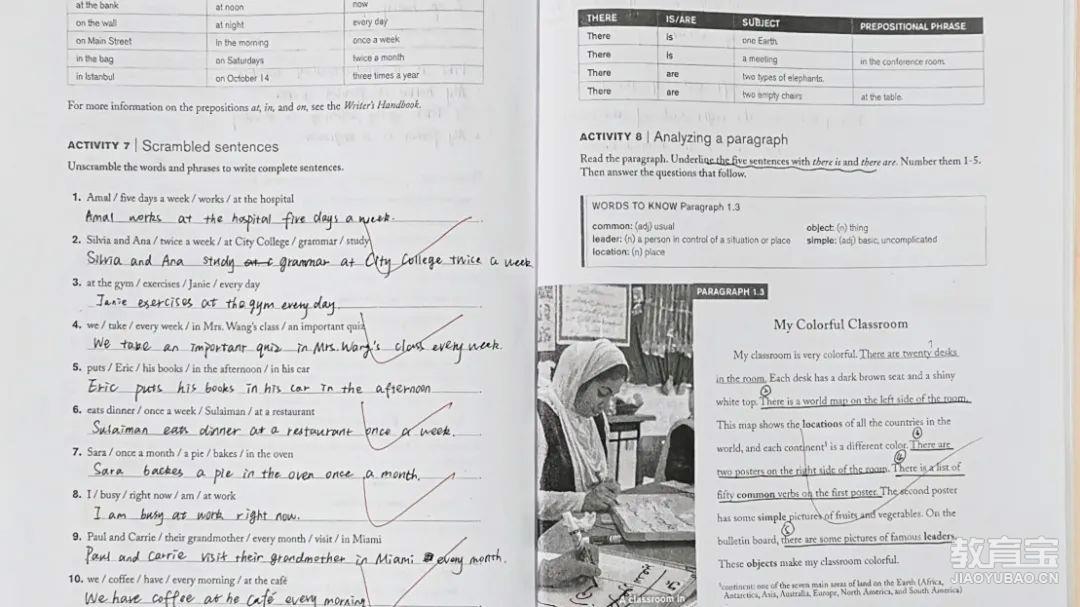 at the bank at noon now
on the wall at night every day
on Main Street in the morning once a week
in the bag on Saturdays twice a month
in Istanbul on October 14 three times a year
For more information on the prepositions at, in, and on, see the Writer's Handbook.
ACTIVITY 7 | Scrambled sentences
Unscramble the words and phrases to write complete sentences.
1. Amal / five days a week / works / at the hospital
Amal works at the hospital five days a week.
2. Silvia and Ana / twice a week / at City College / grammar / study
Silvia and Ana study grammar at City College twice a week
3. at the gym / exercises / Janie / every day
Janie exercises at the gym every day.
4. we / take / every week / in Mrs. Wang's class / an important quiz
We take an important quiz in Mrs. Wang's class every week.
5. puts / Eric / his books / in the afternoon / in his car
Eric puts his books in his car in the afternoon
6. eats dinner / once a week / Sulaiman / at a restaurant
Sulaiman eats dinner at a restaurant once a week.
7. Sara / once a month / a pie / bakes / in the oven
Sara backes a pie in the oven once a month.
8. I / busy / right now / am / at work
I am busy at work right now.
9. Paul and Carrie / their grandmother / every month / visit / in Miami
Paul and Carrie visit their grandmother in Miami every month.
10. we / coffee / have / every morning / at the café
We have coffee at he café every morning
THERE IS/ARE SUBJECT PREPOSITIONAL PHRASE
There is one Earth.
There is a meeting in the conference room.
There are two types of elephants.
There are two empty chairs at the table.
ACTIVITY 8 | Analyzing a paragraph
Read the paragraph. Underline the five sentences with there is and there are. Number them 1-5.
Then answer the questions that follow.
WORDS TO KNOW Paragraph 1.3
common: (adj) usual object: (n) thing
leader: (n) a person in control of a situation or place simple: (adj) basic, uncomplicated
location: (n) place
PARAGRAPH 1.3
My Colorful Classroom
1
My classroom is very colorful. There are twenty desks
in the room. Each desk has a dark brown seat and a shiny
②
white top. There is a world map on the left side of the room.
This map shows the locations of all the countries in the
world, and each continent¹ is a different color. There are
④
two posters on the right side of the room. There is a list of
fifty common verbs on the first poster. The second poster
has some simple pictures of fruits and vegetables. On the
⑤
bulletin board, there are some pictures of famous leaders.
These objects make my classroom colorful.
¹continent: one of the seven main areas of land on the Earth (Africa,
Antarctica, Asia, Australia, Europe, North America, and South America)
A classroom in
教育宝
JIAOYUBAO.CN